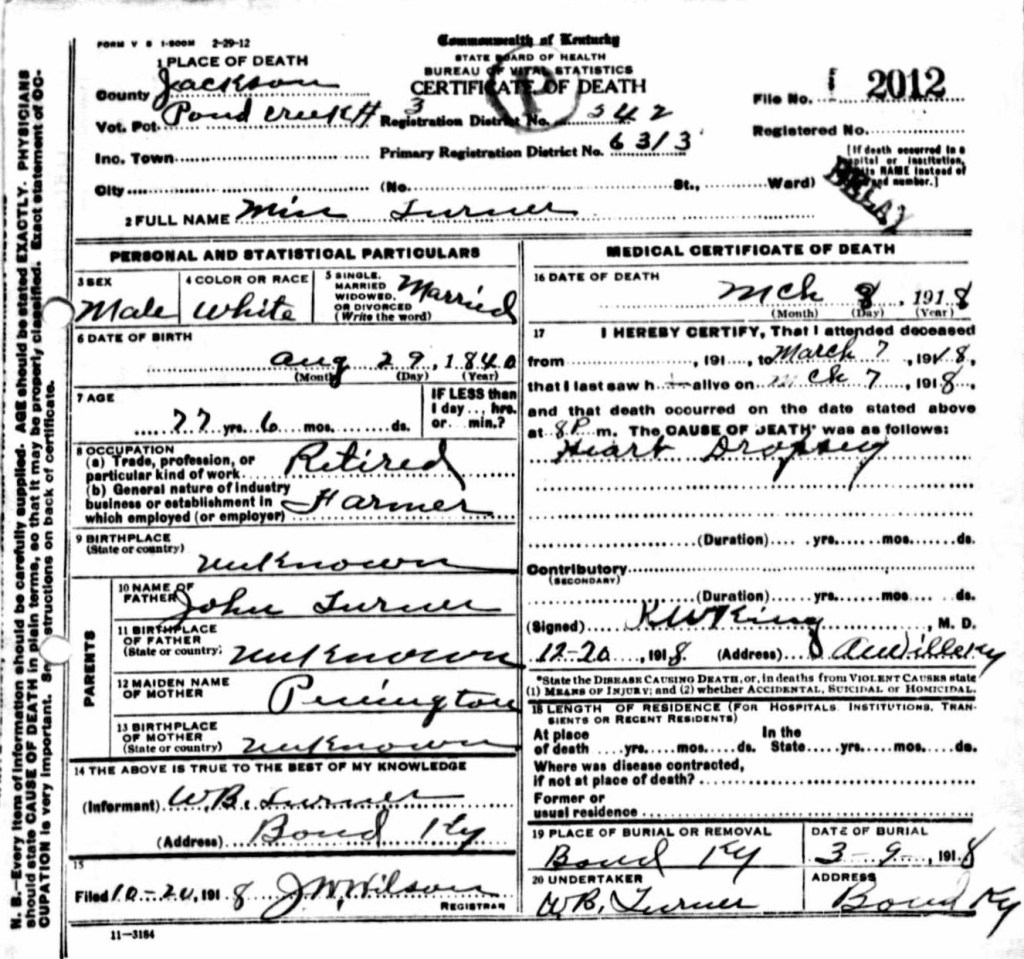 FORM V S 1-500M 2-29-12
Commonwealth of Kentucky
STATE BOARD OF HEALTH
BUREAU OF VITAL STATISTICS
CERTIFICATE OF DEATH
1 PLACE OF DEATH
County Jackson
Vot. Pct. Pond Creek #3
Inc. Town
City (No. St., Ward)
Registration District No. 342
Primary Registration District No. 6313
File No. 2012
Registered No.
[If death occurred in a
hospital or institution,
its NAME instead of
and number.]
2 FULL NAME Turner
PERSONAL AND STATISTICAL PARTICULARS
3 SEX
Male
4 COLOR OR RACE
White
5 SINGLE,
MARRIED
WIDOWED,
OR DIVORCED
(Write the word)
Married
6 DATE OF BIRTH
Aug 29, 1840
(Month) (Day) (Year)
7 AGE
77 yrs. 6 mos. ds.
IF LESS than
1 day ... hrs.
or ... min.?
8 OCCUPATION
(a) Trade, profession, or
particular kind of work Retired
(b) General nature of industry
business or establishment in
which employed (or employer) Farmer
9 BIRTHPLACE
(State or country)
unknown
PARENTS
10 NAME OF
FATHER John Turner
11 BIRTHPLACE
OF FATHER
(State or country) unknown
12 MAIDEN NAME
OF MOTHER Penington
13 BIRTHPLACE
OF MOTHER
(State or country) unknown
14 THE ABOVE IS TRUE TO THE BEST OF MY KNOWLEDGE
(Informant) W.B. Turner
(Address) Bond Ky
15
Filed 10-20, 1918 J.W. Wilson
REGISTRAR
11-3184
MEDICAL CERTIFICATE OF DEATH
16 DATE OF DEATH
Mch 8, 1918
(Month) (Day) (Year)
17 I HEREBY CERTIFY, That I attended deceased
from , 191 , to March 7, 1918,
that I last saw h alive on Mch 7, 1918,
and that death occurred on the date stated above
at 8P m. The CAUSE OF DEATH* was as follows:
Heart Dropsey
(Duration) yrs. mos. ds.
Contributory
(SECONDARY)
(Duration) yrs. mos. ds.
(Signed) King, M. D.
12-20, 1918. (Address)
*State the DISEASE CAUSING DEATH, or, in deaths from VIOLENT CAUSES state
(1) MEANS OF INJURY; and (2) whether ACCIDENTAL, SUICIDAL or HOMICIDAL.
18 LENGTH OF RESIDENCE (FOR HOSPITALS, INSTITUTIONS, TRAN-
SIENTS OR RECENT RESIDENTS)
At place In the
of death yrs. mos. ds. State yrs. mos. ds.
Where was disease contracted,
if not at place of death?
Former or
usual residence
19 PLACE OF BURIAL OR REMOVAL
Bond Ky
DATE OF BURIAL
3-9, 1918
20 UNDERTAKER
W.B. Turner
ADDRESS
Bond Ky
N. B.—Every item of information should be carefully supplied. AGE should be stated EXACTLY. PHYSICIANS
should state CAUSE OF DEATH in plain terms, so that it may be properly classified. Exact statement of OC-
CUPATION is very important. See instructions on back of certificate.